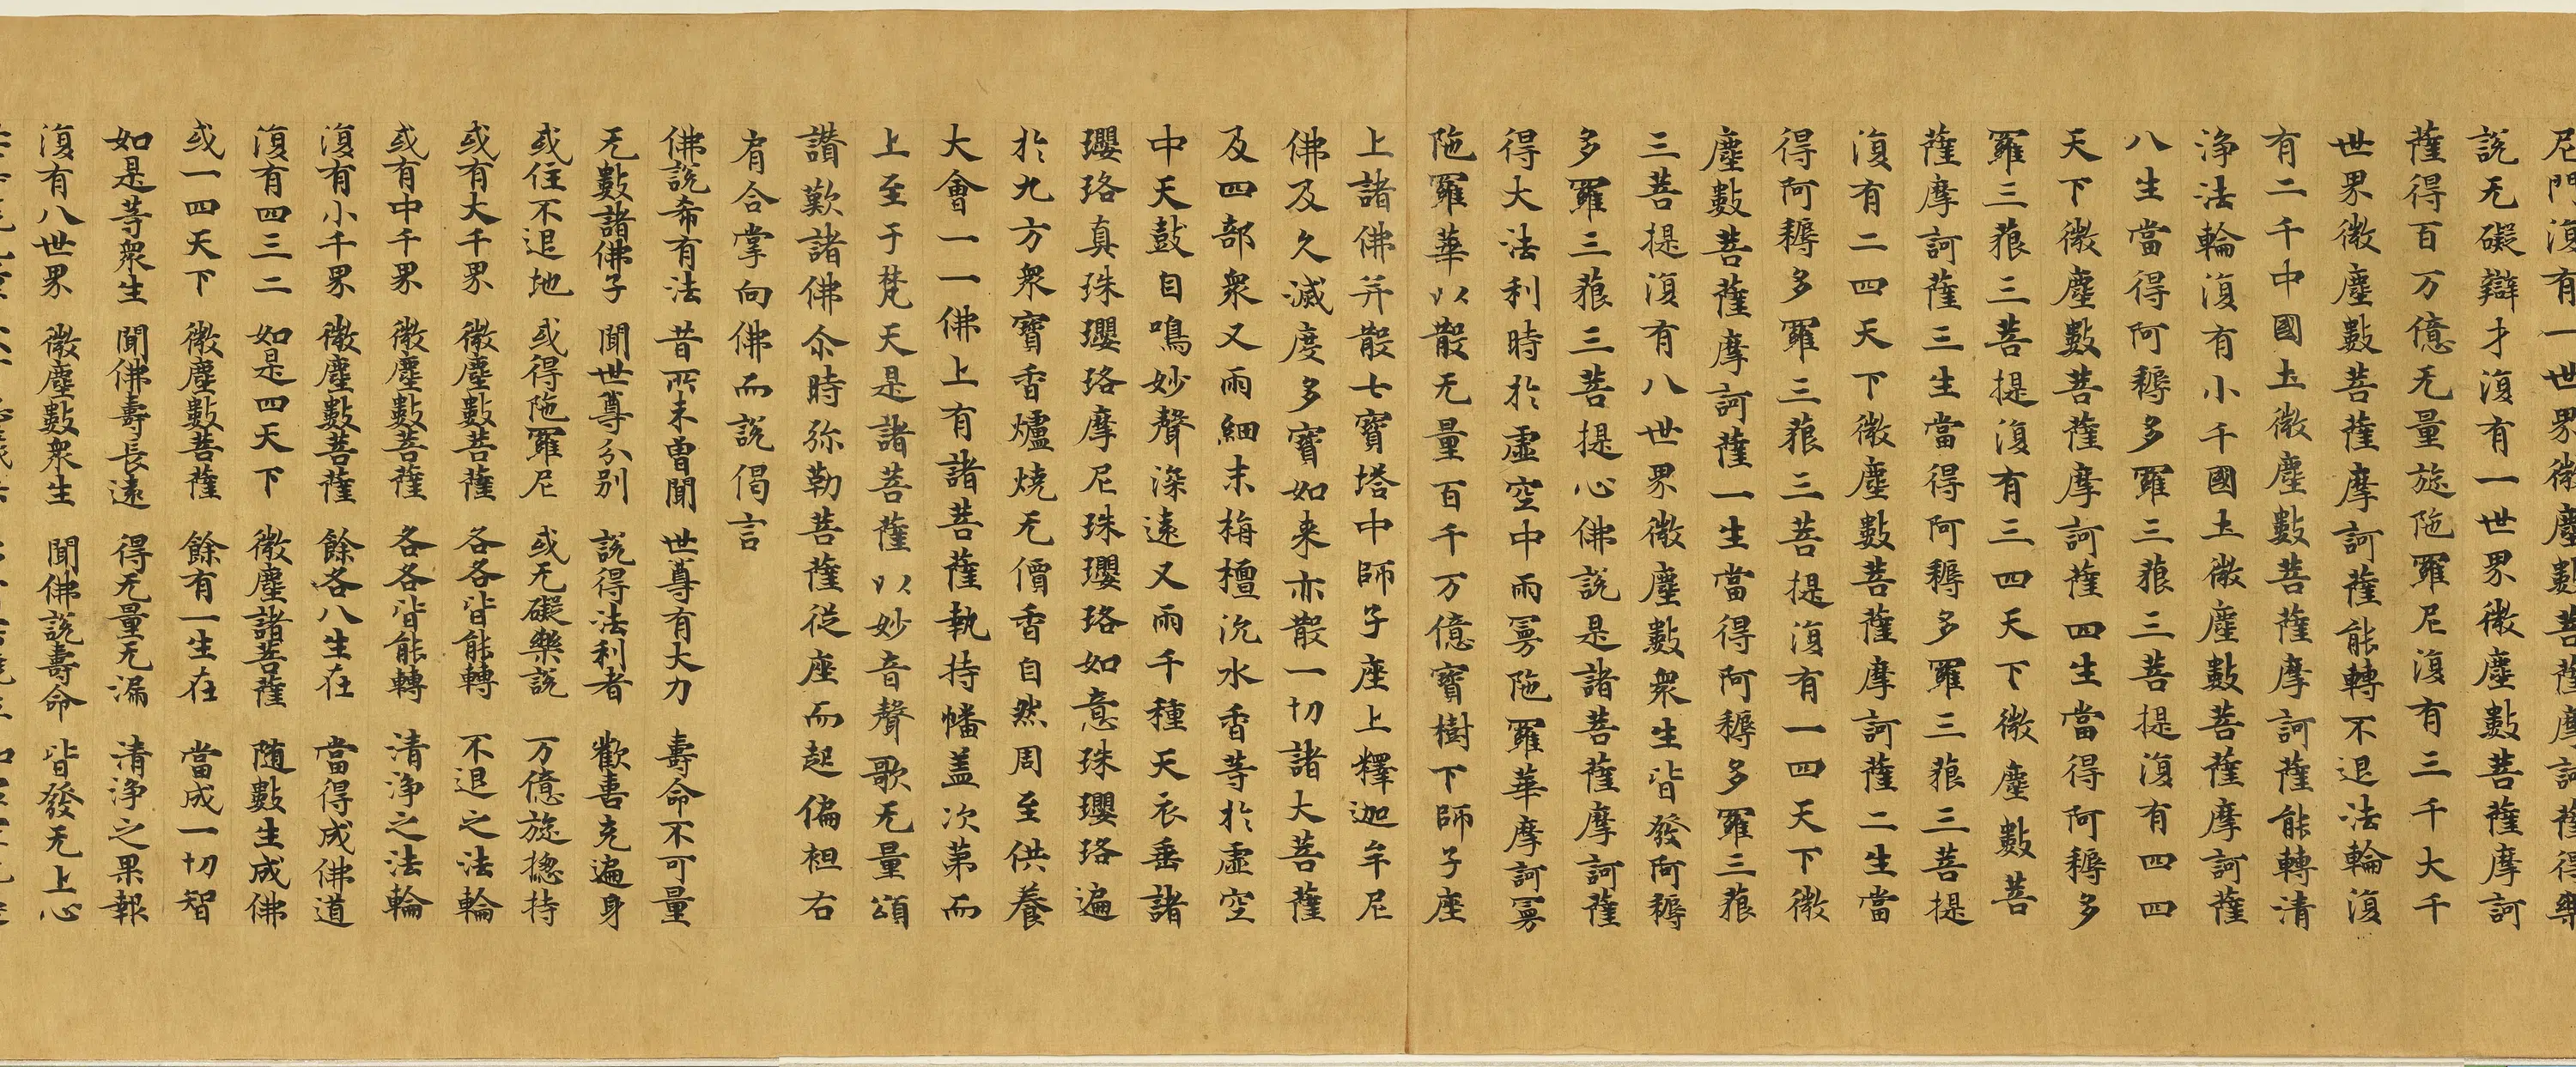 尼門復有一世界微塵數菩薩摩訶薩得樂
說无礙辯才復有一世界微塵數菩薩摩訶
薩得百万億无量旋陁羅尼復有三千大千
世界微塵數菩薩摩訶薩能轉不退法輪復
有二千中國土微塵數菩薩摩訶薩能轉清
淨法輪復有小千國土微塵數菩薩摩訶薩
八生當得阿耨多羅三藐三菩提復有四四
天下微塵數菩薩摩訶薩四生當得阿耨多
羅三藐三菩提復有三四天下微塵數菩
薩摩訶薩三生當得阿耨多羅三藐三菩提
復有二四天下微塵數菩薩摩訶薩二生當
得阿耨多羅三藐三菩提復有一四天下微
塵數菩薩摩訶薩一生當得阿耨多羅三藐
三菩提復有八世界微塵數衆生皆發阿耨
多羅三藐三菩提心佛說是諸菩薩摩訶薩
得大法利時於虛空中雨曼陁羅華摩訶曼
陁羅華以散无量百千万億寶樹下師子座
上諸佛并散七寶塔中師子座上釋迦牟尼
佛及久滅度多寶如来亦散一切諸大菩薩
及四部衆又雨細末栴檀沉水香等於虛空
中天鼓自鳴妙聲深遠又雨千種天衣垂諸
瓔珞真珠瓔珞摩尼珠瓔珞如意珠瓔珞遍
於九方衆寶香爐燒无價香自然周至供養
大會一一佛上有諸菩薩執持幡盖次第而
上至于梵天是諸菩薩以妙音聲歌无量頌
讃歎諸佛尒時弥勒菩薩從座而起偏袒右
肩合掌向佛而說偈言
佛說希有法 昔所未曽聞 世尊有大力 壽命不可量
无數諸佛子 聞世尊分別 說得法利者 歡喜充遍身
或住不退地 或得陁羅尼 或无礙樂說 万億旋揔持
或有大千界 微塵數菩薩 各各皆能轉 不退之法輪
或有中千界 微塵數菩薩 各各皆能轉 清淨之法輪
復有小千界 微塵數菩薩 餘各八生在 當得成佛道
復有四三二 如是四天下 微塵諸菩薩 随數生成佛
或一四天下 微塵數菩薩 餘有一生在 當成一切智
如是等衆生 聞佛壽長遠 得无量无漏 清淨之果報
復有八世界 微塵數衆生 聞佛說壽命 皆發无上心